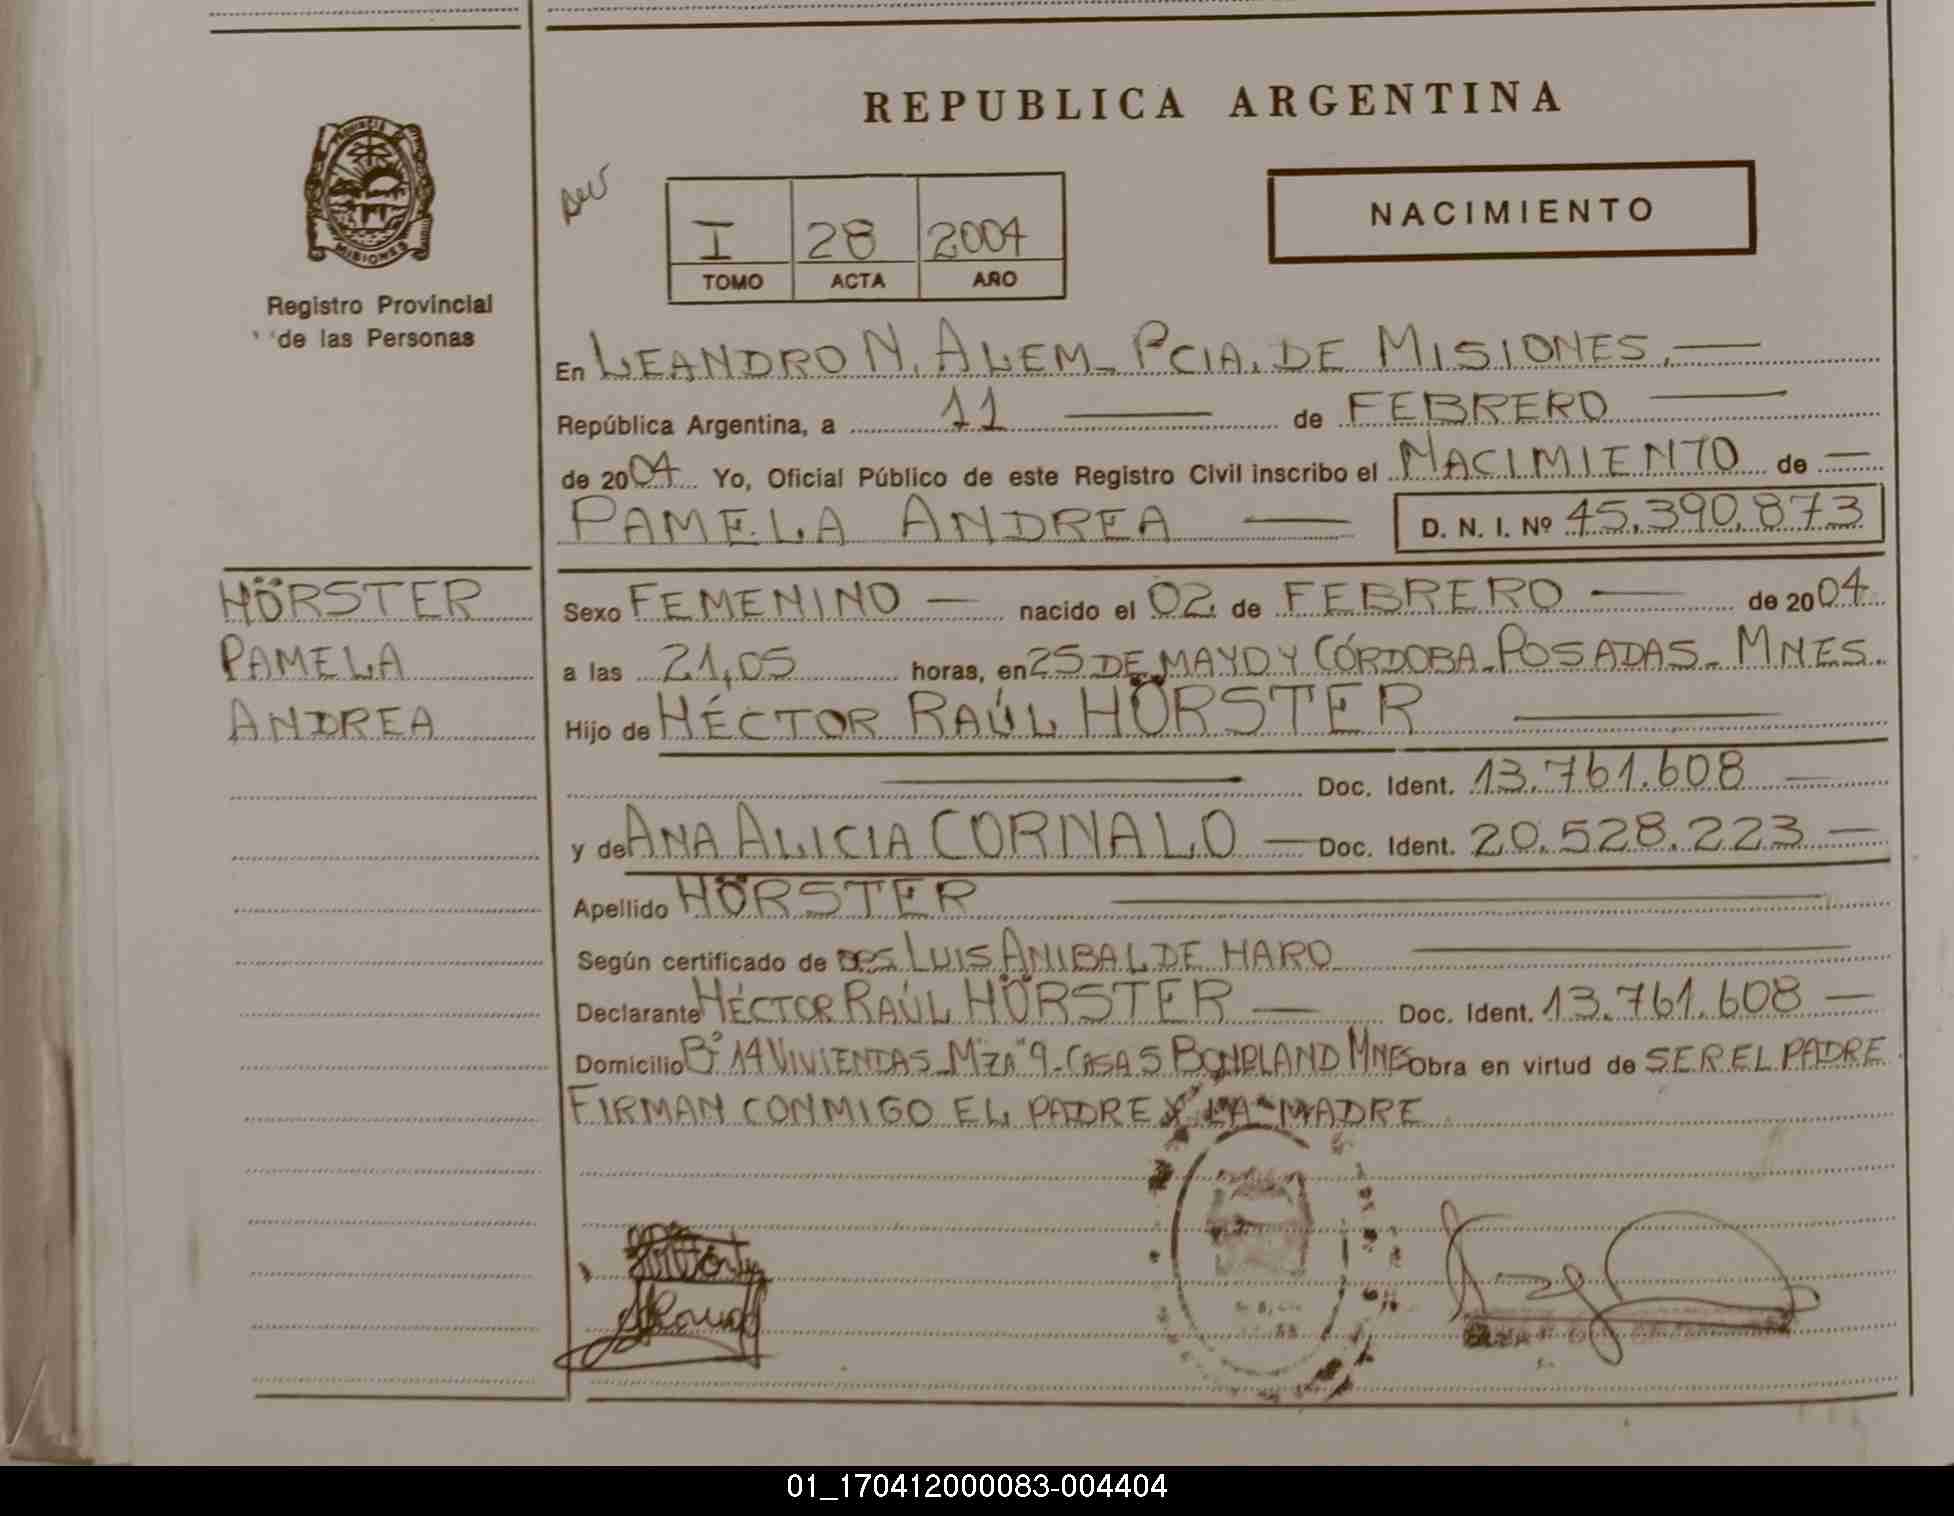 REPUBLICA ARGENTINA
PROVINCIA DE
MISIONES
Registro Provincial
de las Personas
I 28 2004
TOMO ACTA AÑO
NACIMIENTO
En LEANDRO N. ALEM - PCIA. DE MISIONES.
República Argentina, a 11 de FEBRERO
de 2004 Yo, Oficial Público de este Registro Civil inscribo el NACIMIENTO de
PAMELA ANDREA D. N. I. Nº 45.390.873
HÖRSTER
PAMELA
ANDREA
Sexo FEMENINO nacido el 02 de FEBRERO de 2004
a las 21,05 horas, en 25 DE MAYO Y CÓRDOBA - POSADAS - MNES.
Hijo de HÉCTOR RAÚL HÖRSTER
Doc. Ident. 13.761.608
y de ANA ALICIA CORNALO Doc. Ident. 20.528.223
Apellido HÖRSTER
Según certificado de LUIS ANIBAL DE HARO
Declarante HÉCTOR RAÚL HÖRSTER Doc. Ident. 13.761.608
Domicilio Bº 14 VIVIENDAS - MZA "9 - CASA 5 BONPLAND MNES Obra en virtud de SER EL PADRE
FIRMAN CONMIGO EL PADRE Y LA MADRE
01_170412000083-004404